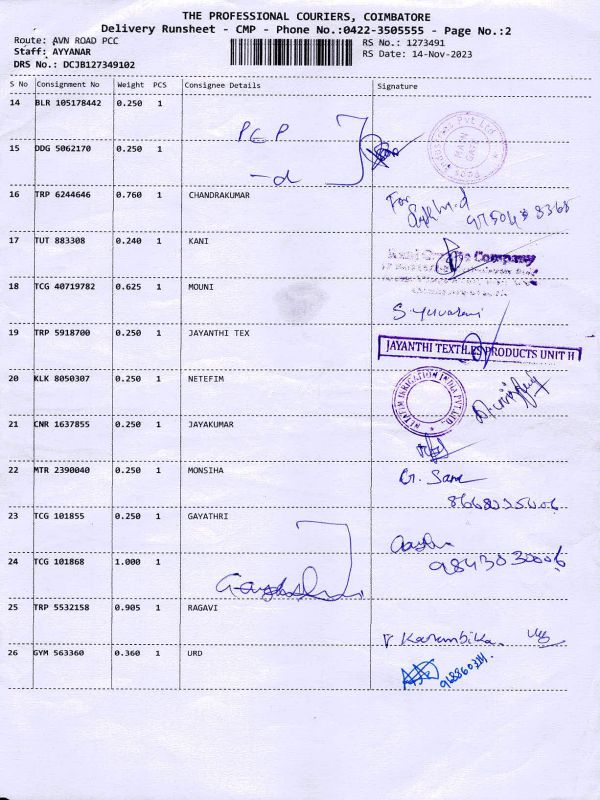 THE PROFESSIONAL COURIERS, COIMBATORE
Delivery Runsheet - CMP - Phone No.:0422-3505555 - Page No.:2
Route: AVN ROAD PCC
RS No.: 1273491
Staff: AYYANAR
RS Date: 14-Nov-2023
DRS No.: DCJB127349102
S No Consignment No Weight PCS Consignee Details Signature
14 BLR 105178442 0.250 1
PCP
15 DDG 5062170 0.250 1
-d
16 TRP 6244646 0.760 1 CHANDRAKUMAR
For
17 TUT 883308 0.240 1 KANI
Company
18 TCG 40719782 0.625 1 MOUNI
S. Yuvarani
19 TRP 5918700 0.250 1 JAYANTHI TEX
JAYANTHI TEXTILES PRODUCTS UNIT II
20 KLK 8050307 0.250 1 NETEFIM
NETAFIM IRRIGATION INDIA PVT.LTD.,
21 CNR 1637855 0.250 1 JAYAKUMAR
22 MTR 2390040 0.250 1 MONSIHA
23 TCG 101855 0.250 1 GAYATHRI
24 TCG 101868 1.000 1
9843030006
25 TRP 5532158 0.905 1 RAGAVI
V. Karambika.
26 GYM 563360 0.360 1 URD